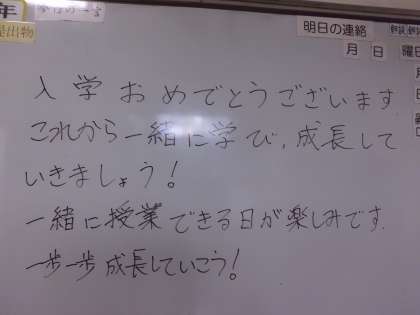 年
今日の一言
提出物
明日の連絡
月 日 曜日
入学おめでとうございます
これから一緒に学び,成長して
いきましょう!
一緒に授業できる日が楽しみです.
一歩一歩成長していこう!